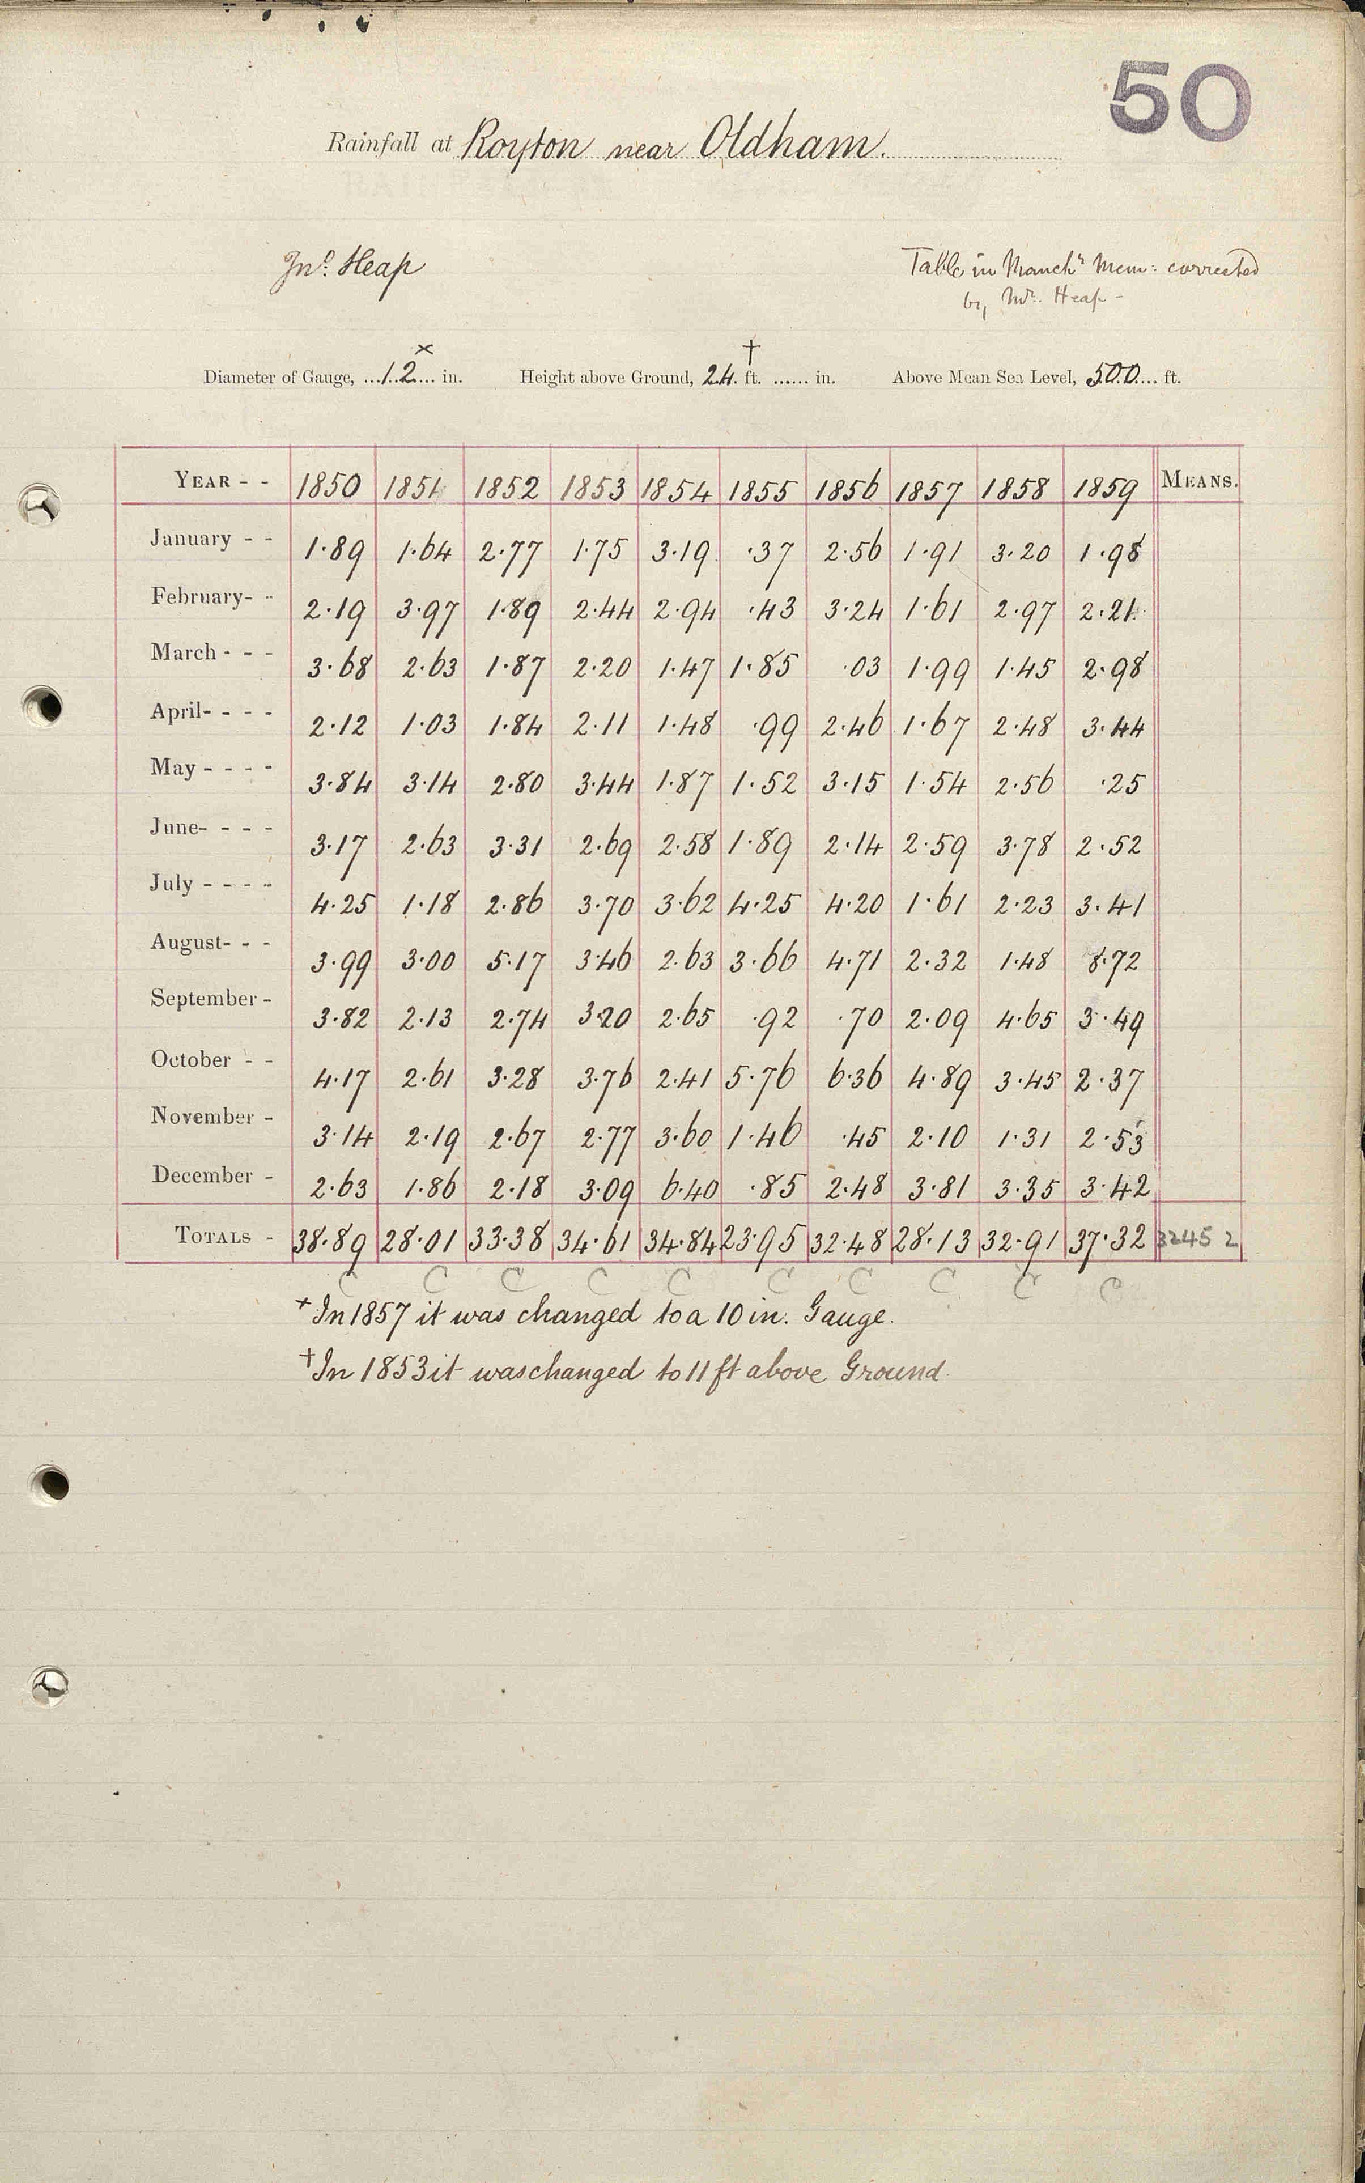 50
Rainfall at Royton near Oldham.
Jno. Heap
Table in Manchr Mem: corrected
by Mr. Heap -
Diameter of Gauge, ...12x... in. Height above Ground, 24† ft. ...... in. Above Mean Sea Level, 500... ft.
YEAR - - 1850 1851 1852 1853 1854 1855 1856 1857 1858 1859 MEANS.
January - - 1.89 1.64 2.77 1.75 3.19 .37 2.56 1.91 3.20 1.98
February- - 2.19 3.97 1.89 2.44 2.94 .43 3.24 1.61 2.97 2.21
March - - - 3.68 2.63 1.87 2.20 1.47 1.85 .03 1.99 1.45 2.98
April- - - - 2.12 1.03 1.84 2.11 1.48 .99 2.46 1.67 2.48 3.44
May - - - - 3.84 3.14 2.80 3.44 1.87 1.52 3.15 1.54 2.56 .25
June- - - - 3.17 2.63 3.31 2.69 2.58 1.89 2.14 2.59 3.78 2.52
July - - - - 4.25 1.18 2.86 3.70 3.62 4.25 4.20 1.61 2.23 3.41
August- - - 3.99 3.00 5.17 3.46 2.63 3.66 4.71 2.32 1.48 8.72
September - 3.82 2.13 2.74 3.20 2.65 .92 .70 2.09 4.65 3.49
October - - 4.17 2.61 3.28 3.76 2.41 5.76 6.36 4.89 3.45 2.37
November - 3.14 2.19 2.67 2.77 3.60 1.46 .45 2.10 1.31 2.53
December - 2.63 1.86 2.18 3.09 6.40 .85 2.48 3.81 3.35 3.42
TOTALS - 38.89 28.01 33.38 34.61 34.84 23.95 32.48 28.13 32.91 37.32 32452
C C C C C C C C C C
x In 1857 it was changed to a 10 in. Gauge.
† In 1853 it was changed to 11 ft above Ground.